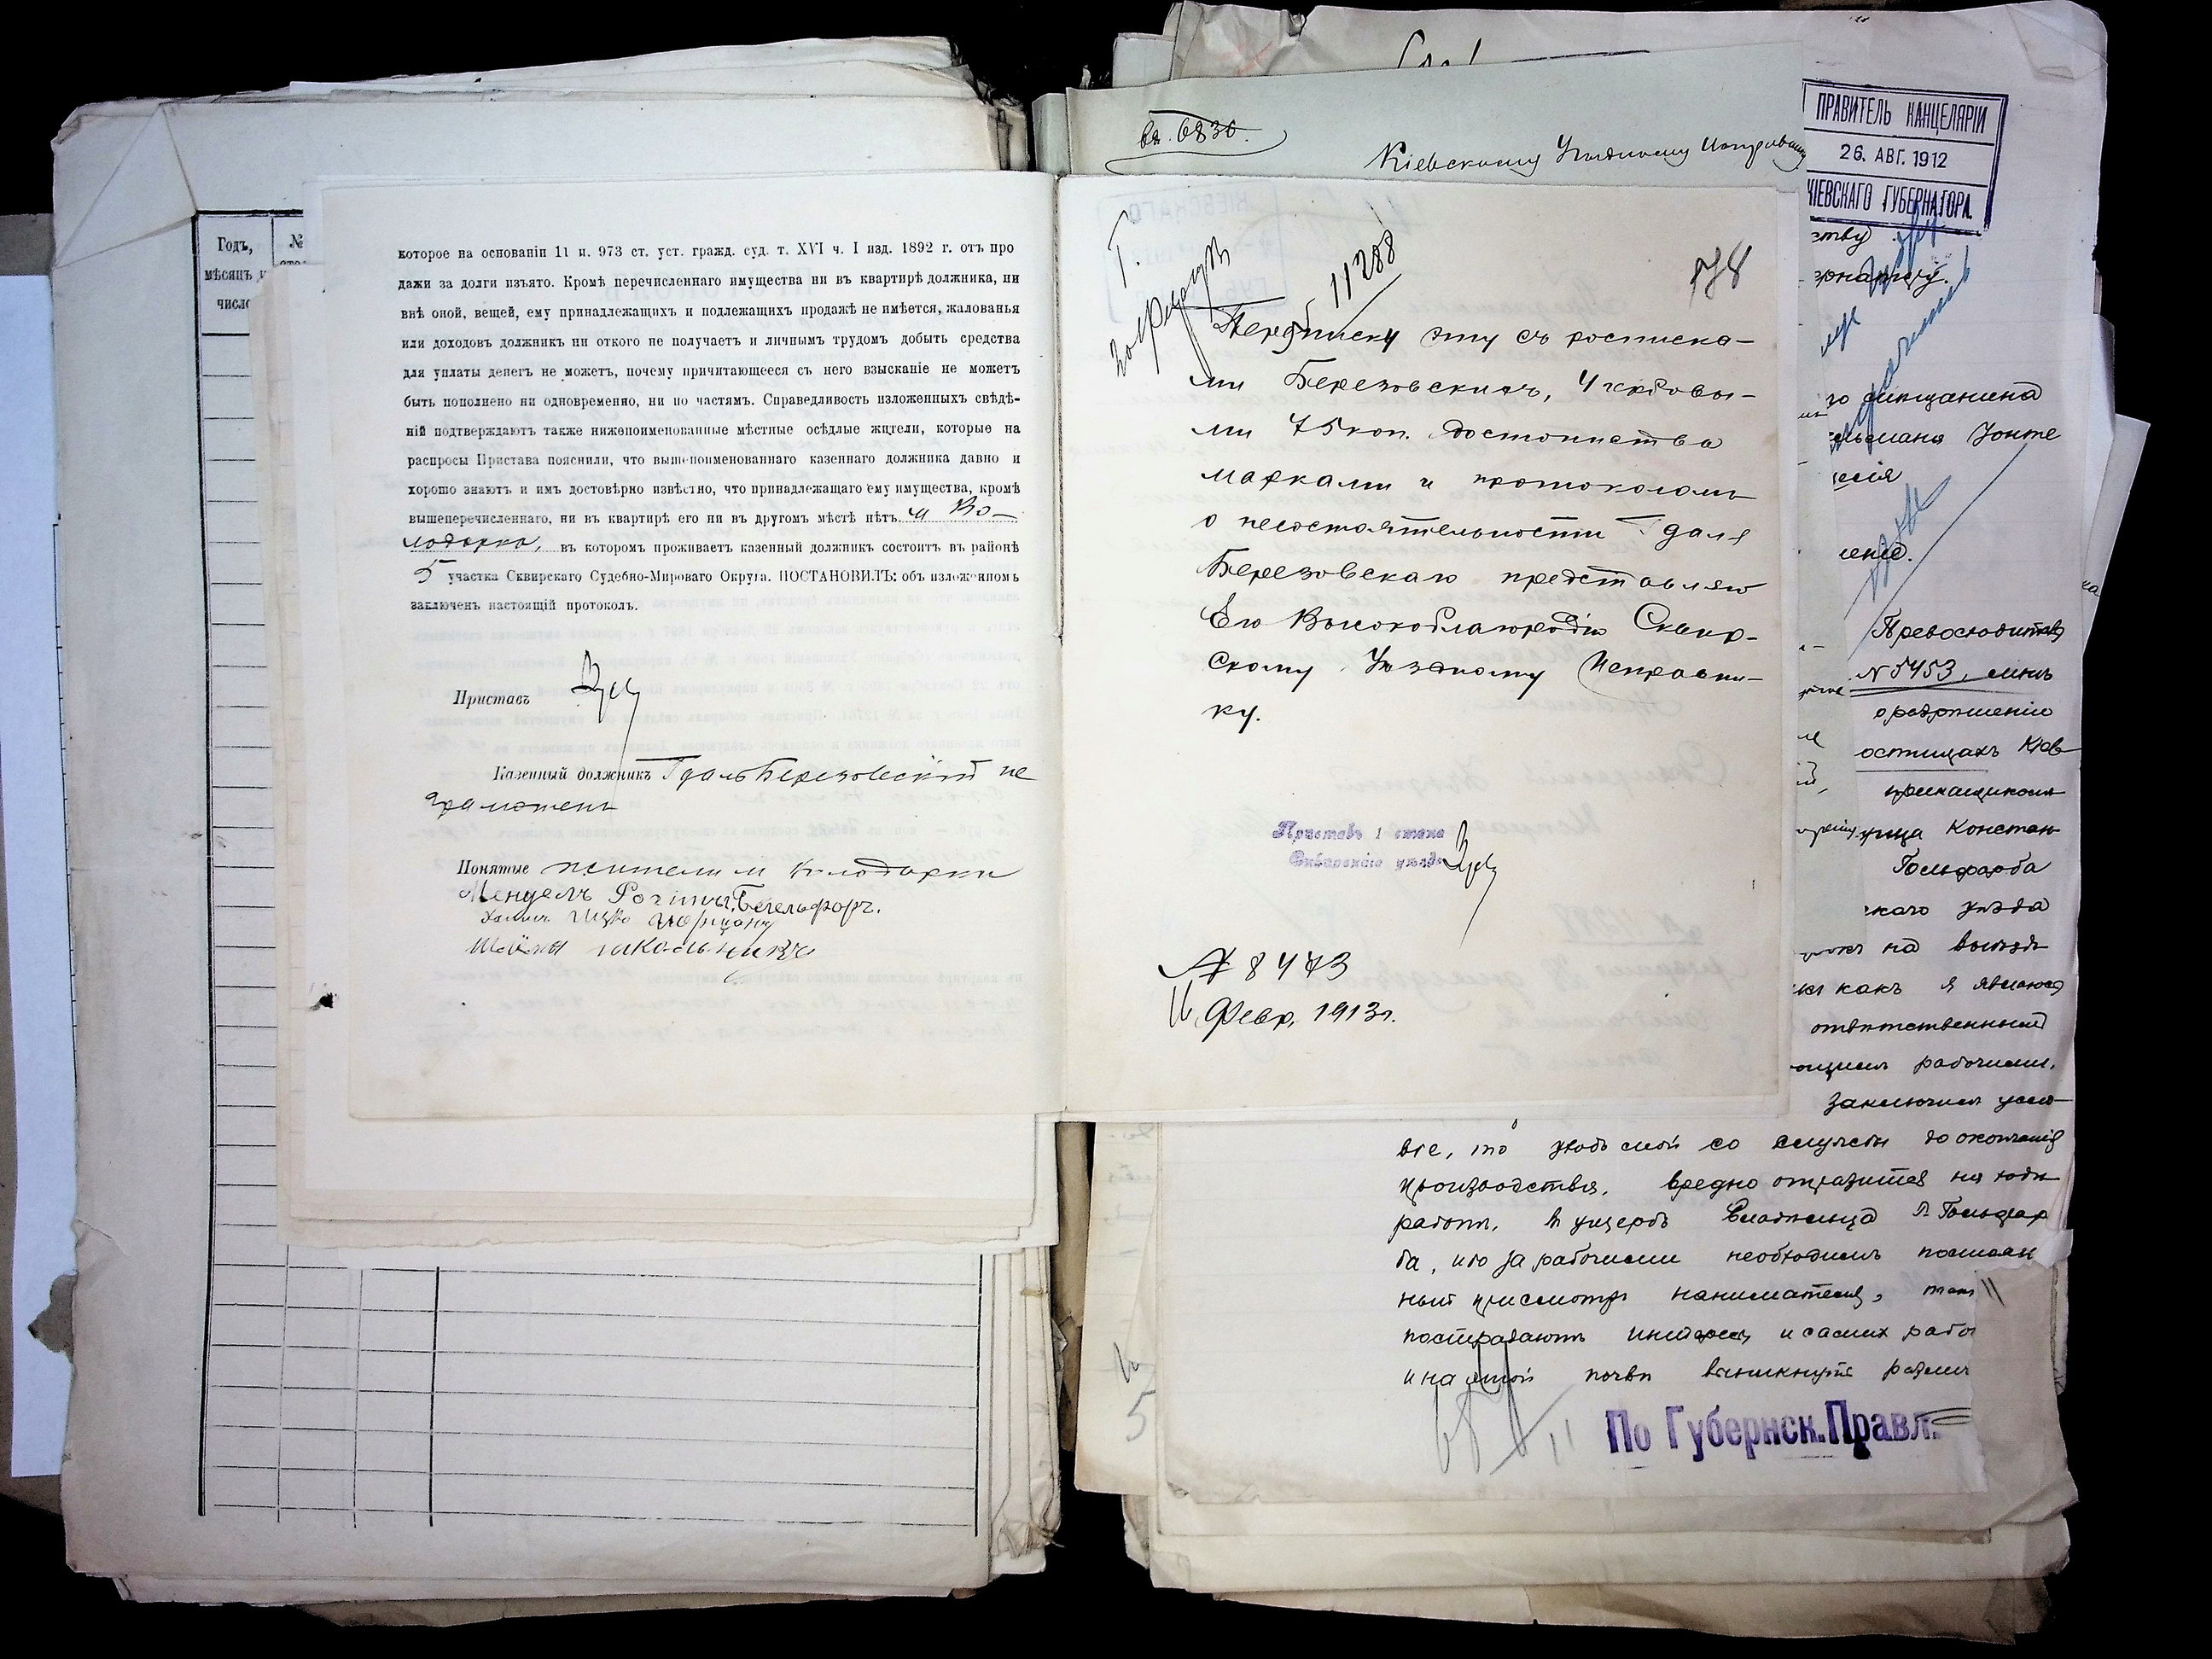 Годъ,
мѣсяцъ и
число
№
которое на основаніи 11 и. 973 ст. уст. гражд. суд. т. XVI ч. I изд. 1892 г. отъ про
дажи за долги изъято. Кромѣ перечисленнаго имущества ни въ квартирѣ должника, ни
внѣ оной, вещей, ему принадлежащихъ и подлежащихъ продажѣ не имѣется, жалованья
или доходовъ должникъ ни откого не получаетъ и личнымъ трудомъ добыть средства
для уплаты денегъ не можетъ, почему причитающееся съ него взысканіе не можетъ
быть пополнено ни одновременно, ни по частямъ. Справедливость изложенныхъ свѣдѣ-
ній подтверждаютъ также нижепоименованные мѣстные осѣдлые жители, которые на
распросы Пристава пояснили, что вышепоименованнаго казеннаго должника давно и
хорошо знаютъ и имъ достовѣрно извѣстно, что принадлежащаго ему имущества, кромѣ
вышеперечисленнаго, ни въ квартирѣ его ни въ другомъ мѣстѣ нѣтъ. м Во-
лодарка, въ которомъ проживаетъ казенный должникъ состоитъ въ районѣ
5 участка Сквирскаго Судебно-Мироваго Округа. ПОСТАНОВИЛЪ: объ изложенномъ
заключенъ настоящій протоколъ.
Приставъ
Казенный должникъ Гдаль Березовскій не
грамотенъ
Понятые жители м Володарки
Мендель
вх. 6836
Кіевскому Уѣздному Исправнику
Г.
11288
178
Переписку эту съ росписка-
ми Березовскихъ, 4 гербовы-
ми 75 коп. достоинства
марками и протоколомъ
о несостоятельности Гдаля
Березовскаго представляю
Его Высокоблагородію Сквир-
скому Уѣздному Исправни-
ку.
Приставъ 1 стана
Сквирскаго уѣзда
№ 8473
11 Февр. 1913 г.
ПРАВИТЕЛЬ КАНЦЕЛЯРІИ
26. АВГ. 1912
КІЕВСКАГО ГУБЕРНАТОРА.
ству
ернатору.
го мѣщанина
ельмана Іонте
ленія
леніе.
Превосходитель
№ 5453, мнѣ
о разрѣшеніи
остицахъ Кіев-
приказчикомъ
Констан
Гольфарба
скаго уѣзда
на выѣздъ
какъ я являюсь
отвѣтственный
рабочими,
заключилъ усло-
віе, то уходъ мой со службы до окончанія
производства, вредно отразится на ходѣ
работъ, въ ущербъ владѣльца Гольфар
ба, ибо за рабочими необходимъ постоян
ный присмотръ нанимателя, такъ
пострадаютъ интересы и самихъ рабо
и на этой почвѣ возникнутъ различ
По Губернск. Правл.